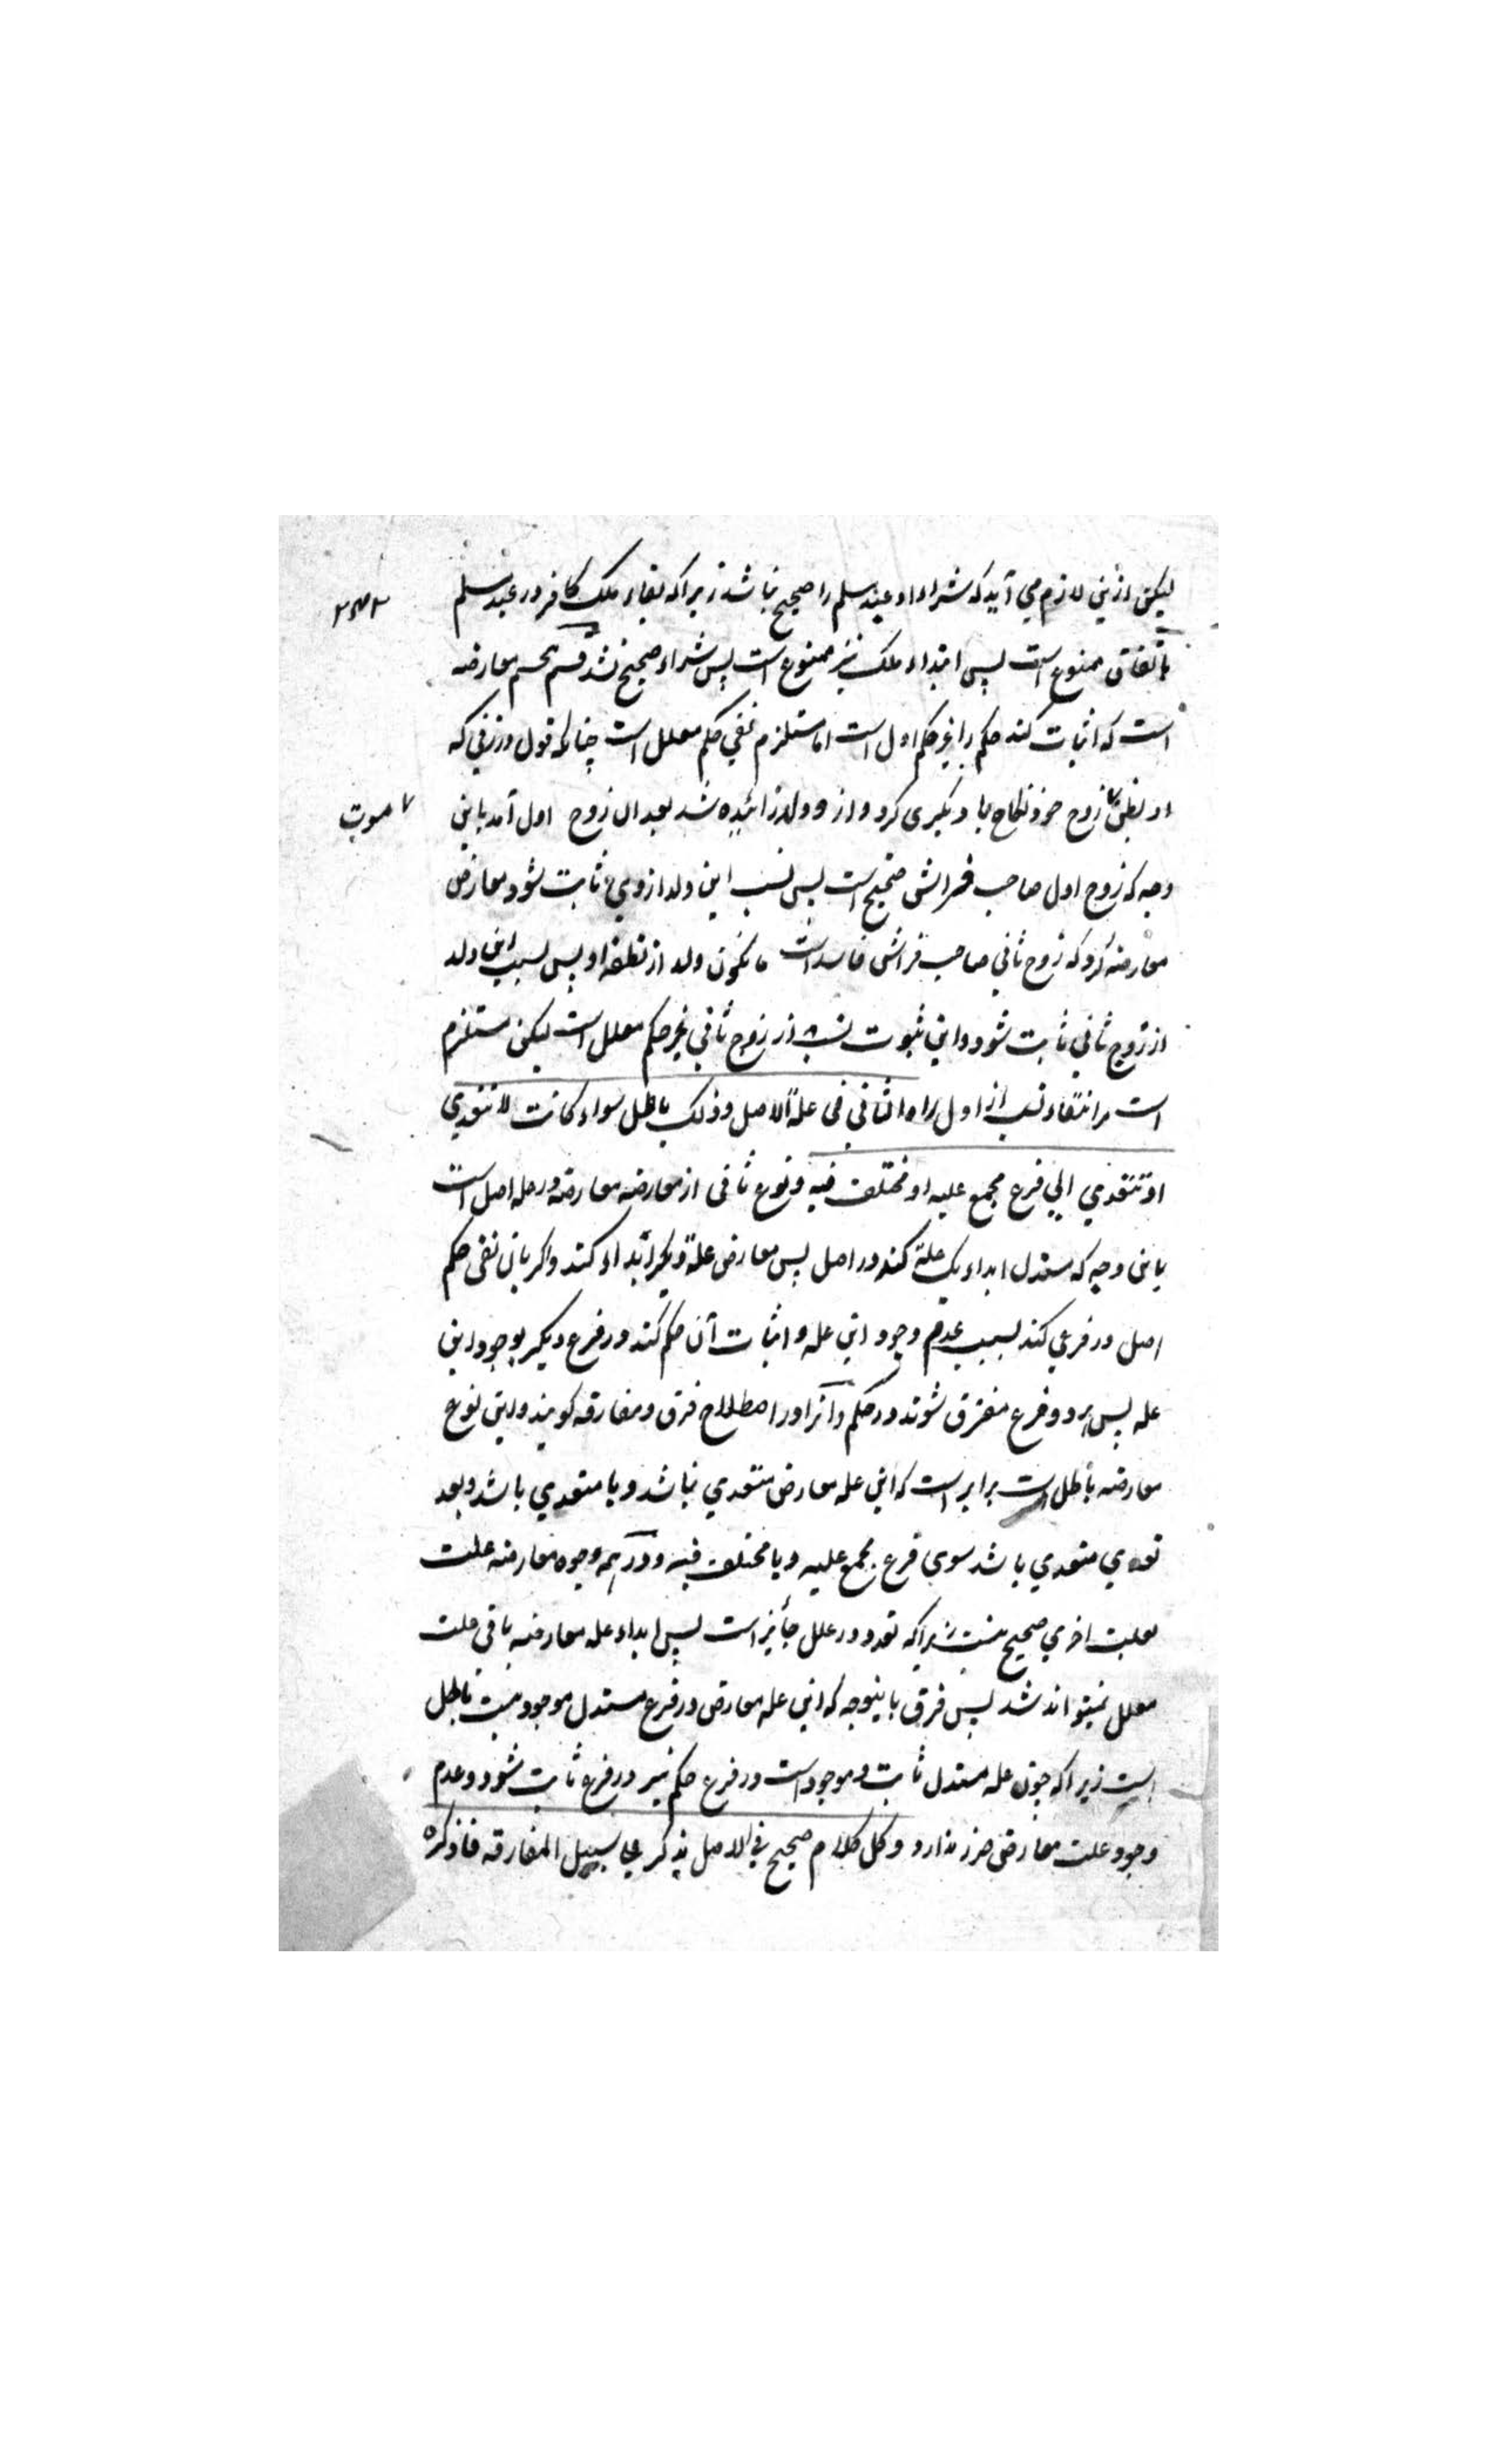 لیکن ازینی لازم می آید که شراء او عبد مسلم را صحیح نباشد زیراکه بقاء ملک کافر در عبد مسلم
باتفاق ممنوع است پس ابتداء ملک نیز ممنوع است پس شراء صحیح نشد قسم پنجم معارضه
است که اثبات کند حکم را غیر حکم اول است اما مستلزم نفی حکم معلل است چنانکه قول در زنی که
او بظن زوج خود نکاح با دیگری کرد و از وولد زائیده شد بعد ان زوج اول آمد باین
موت
وجه که زوج اول صاحب فراش صحیح است پس نسب این ولد ازوی ثابت شود معارض
معارضه کرد که زوج ثانی صاحب فراش فاسد است ولد از نطفه او پس نسب این ولد
از زوج ثانی ثابت شود و این ثبوت نسب از زوج ثانی غیر حکم معلل است لیکن مستلزم
است مر انتفاء نسب از اول را والثانی فی علة الاصل وذلک باطل سواء کانت لا تتعدی
او تتعدی الی فرع مجمع علیه او مختلف فیه و نوع ثانی از معارضه معارضه در عله اصل است
باین وجه که مستدل ابداء یک علة کند در اصل پس معارض علة دیگر ابداء کند و اگر بان نفی حکم
اصل در فرعی کند بسبب عدم وجود این عله و اثبات آن حکم کند در فرع دیگر بوجود این
عله پس هر دو فرع مفترق شوند در حکم وآنرا در اصطلاح فرق و مفارقه گویند و این نوع
معارضه باطل است برابر است که این عله معارض متعدی نباشد و یا متعدی باشد و بعد
تعدی متعدی باشد سوی فرع مجمع علیه و یا مختلف فیه و در همه وجوه معارضه علت
بعلت اخری صحیح نیست زیراکه تعدد در علل جائز است پس ابداء عله معارضه علت
معلل نمیتواند شد پس فرق باینوجه که این عله معارض در فرع مستدل موجود نیست باطل
است زیراکه چون عله مستدل ثابت و موجود است در فرع حکم نیز در فرع ثابت شود و عدم
وجود علت معارض ضرر ندارد وکل کلام صحیح فی الاصل یذکر علی سبیل المفارقه فاذکره